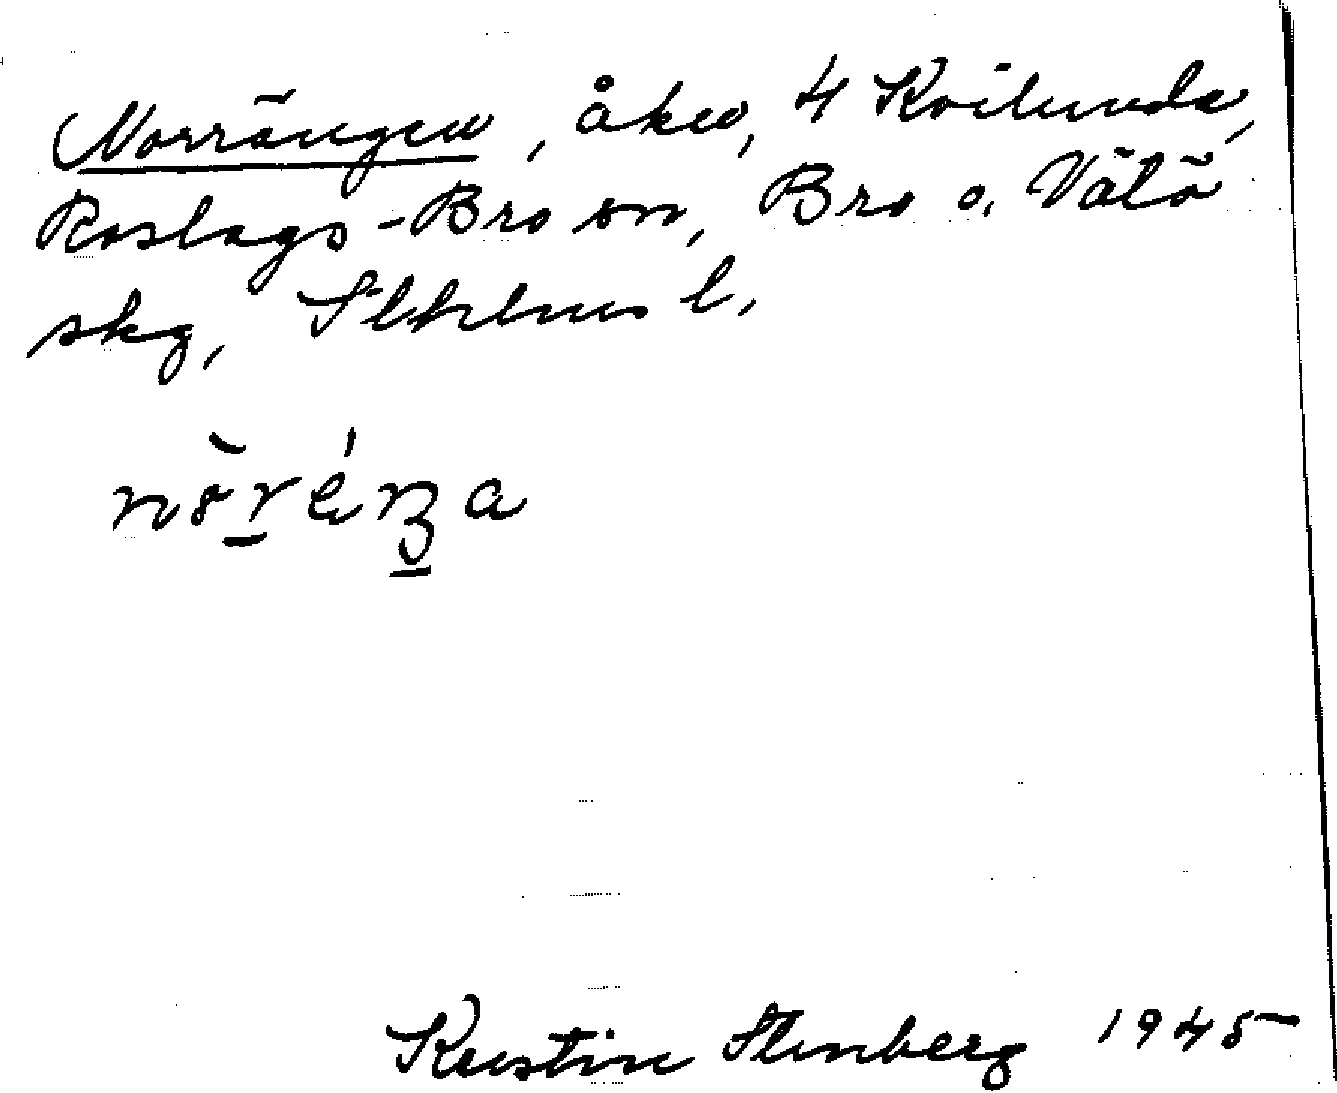 Norrängen, åker, 4 Kvilunda,
Roslags-Bro sn, Bro o. Vätö
skg, Sthlms l.
Kerstin Stenberg 1945